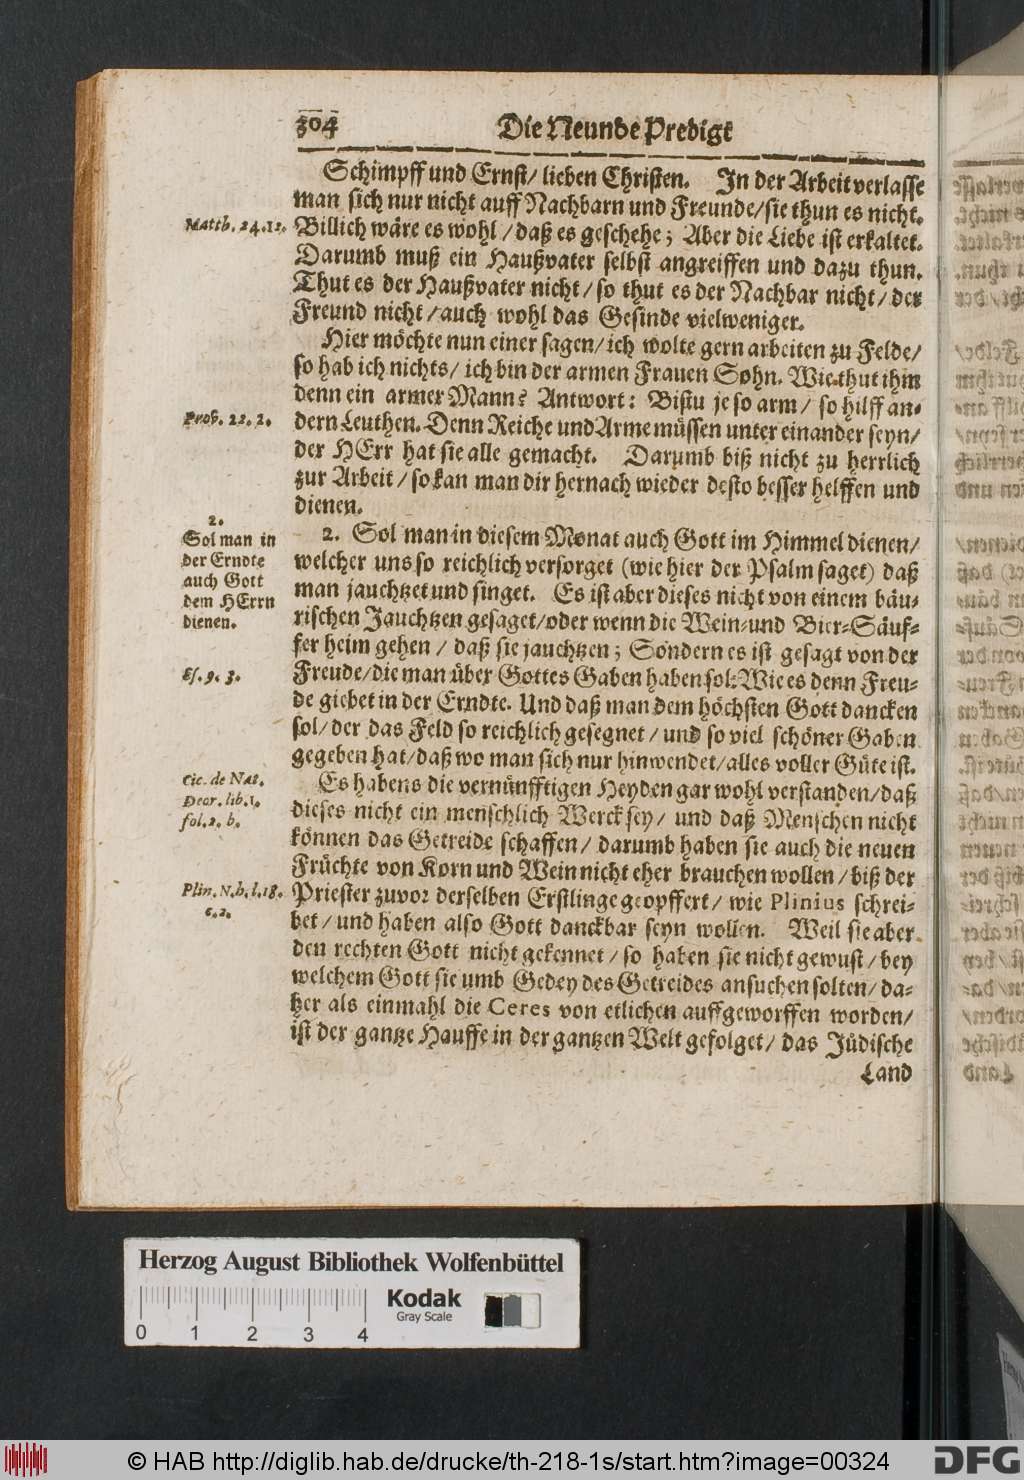 304 Die Neunde Predigt
Schimpff und Ernst/ lieben Christen. In der Arbeit verlasse
man sich nur nicht auff Nachbarn und Freunde/ sie thun es nicht.
Matth. 24. 12.
Billich wäre es wohl/ daß es geschehe; Aber die Liebe ist erkaltet.
Darumb muß ein Haußvater selbst angreiffen und dazu thun.
Thut es der Haußvater nicht/ so thut es der Nachbar nicht/ der
Freund nicht/ auch wohl das Gesinde vielweniger.
Hier möchte nun einer sagen/ ich wolte gern arbeiten zu Felde/
so hab ich nichts/ ich bin der armen Frauen Sohn. Wie thut ihm
denn ein armer Mann? Antwort: Bistu je so arm/ so hilff an-
Prov. 22. 2.
dern Leuthen. Denn Reiche und Arme müssen unter einander seyn/
der HErr hat sie alle gemacht. Darumb biß nicht zu herrlich
zur Arbeit/ so kan man dir hernach wieder desto besser helffen und
dienen.
2.
Sol man in
der Erndte
auch Gott
dem HErrn
dienen.
2. Sol man in diesem Monat auch Gott im Himmel dienen/
welcher uns so reichlich versorget (wie hier der Psalm saget) daß
man jauchtzet und singet. Es ist aber dieses nicht von einem bäu-
rischen Jauchtzen gesaget/ oder wenn die Wein- und Bier-Säuf-
fer heim gehen/ daß sie jauchtzen; Sondern es ist gesagt von der
Es. 9. 3.
Freude/ die man über Gottes Gaben haben sol: Wie es denn Freu-
de giebet in der Erndte. Und daß man dem höchsten Gott dancken
sol/ der das Feld so reichlich gesegnet/ und so viel schöner Gaben
gegeben hat/ daß wo man sich nur hinwendet/ alles voller Güte ist.
Cic. de Nat.
Deor. lib. 1.
fol. 2. b.
Es habens die vernünfftigen Heyden gar wohl verstanden/ daß
dieses nicht ein menschlich Werck sey/ und daß Menschen nicht
können das Getreide schaffen/ darumb haben sie auch die neuen
Früchte von Korn und Wein nicht eher brauchen wollen/ biß der
Plin. N. h. l. 18.
c. 2.
Priester zuvor derselben Erstlinge geopffert/ wie Plinius schrei-
bet/ und haben also Gott danckbar seyn wollen. Weil sie aber
den rechten Gott nicht gekennet/ so haben sie nicht gewust/ bey
welchem Gott sie umb Gedey des Getreides ansuchen solten/ da-
her als einmahl die Ceres von etlichen auffgeworffen worden/
ist der gantze Hauffe in der gantzen Welt gefolget/ das Jüdische
Land
Herzog August Bibliothek Wolfenbüttel
0 1 2 3 4
Kodak
Gray Scale
© HAB http://diglib.hab.de/drucke/th-218-1s/start.htm?image=00324
DFG